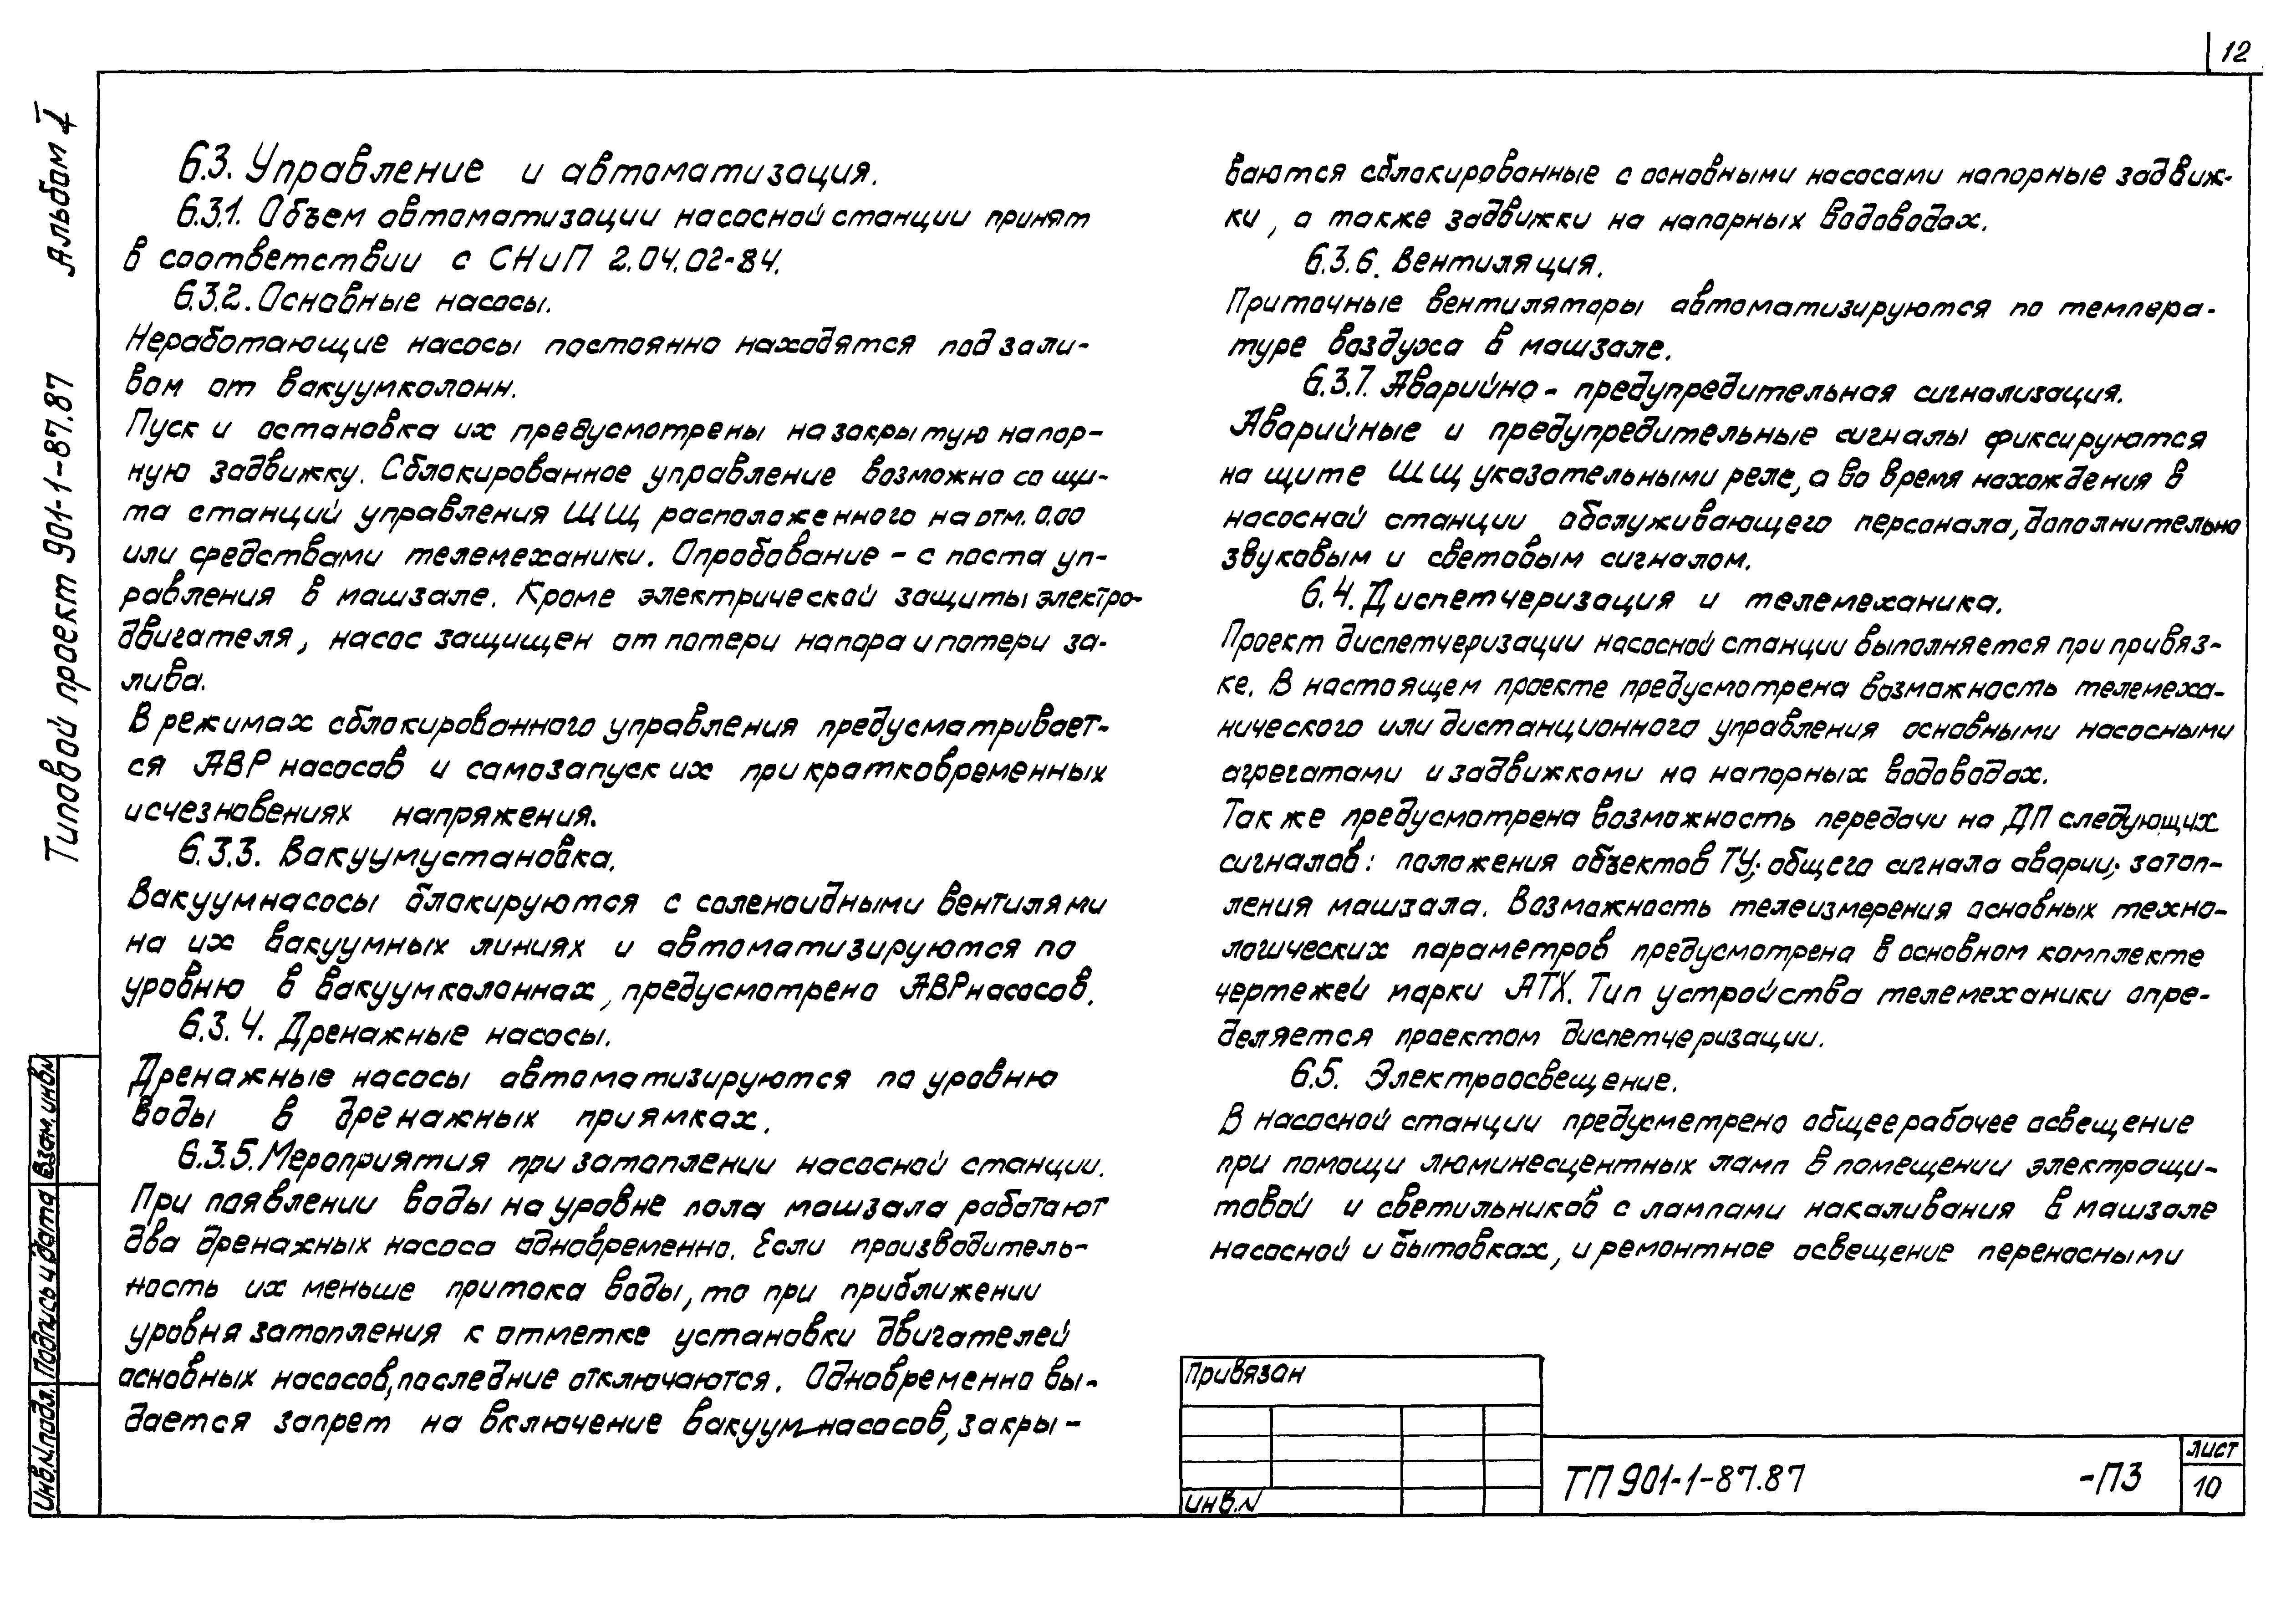 12
Альбом I
Типовой проект 901-1-87.87
6.3. Управление и автоматизация.
6.3.1. Объем автоматизации насосной станции принят
в соответствии с СНиП 2.04.02-84.
6.3.2. Основные насосы.
Неработающие насосы постоянно находятся под зали-
вом от вакуумколонн.
Пуск и остановка их предусмотрены на закрытую напор-
ную задвижку. Сблокированное управление возможно со щи-
та станций управления ШЩ, расположенного на отм. 0.00
или средствами телемеханики. Опробование - с поста уп-
равления в машзале. Кроме электрической защиты электро-
двигателя, насос защищен от потери напора и потери за-
лива.
В режимах сблокированного управления предусматривает-
ся АВР насосов и самозапуск их при кратковременных
исчезновениях напряжения.
6.3.3. Вакуумустановка.
Вакуумнасосы блокируются с соленоидными вентилями
на их вакуумных линиях и автоматизируются по
уровню в вакуумколоннах, предусмотрено АВР насосов.
6.3.4. Дренажные насосы.
Дренажные насосы автоматизируются по уровню
воды в дренажных приямках.
6.3.5. Мероприятия при затоплении насосной станции.
При появлении воды на уровне пола машзала работают
два дренажных насоса одновременно. Если производитель-
ность их меньше притока воды, то при приближении
уровня затопления к отметке установки двигателей
основных насосов, последние отключаются. Одновременно вы-
дается запрет на включение вакуум-насосов, закры-
ваются сблокированные с основными насосами напорные задвиж-
ки, а также задвижки на напорных водоводах.
6.3.6. Вентиляция.
Приточные вентиляторы автоматизируются по темпера-
туре воздуха в машзале.
6.3.7. Аварийно - предупредительная сигнализация.
Аварийные и предупредительные сигналы фиксируются
на щите ШЩ указательными реле, а во время нахождения в
насосной станции обслуживающего персонала, дополнительно
звуковым и световым сигналом.
6.4. Диспетчеризация и телемеханика.
Проект диспетчеризации насосной станции выполняется при привяз-
ке. В настоящем проекте предусмотрена возможность телемеха-
нического или дистанционного управления основными насосными
агрегатами и задвижками на напорных водоводах.
Так же предусмотрена возможность передачи на ДП следующих
сигналов: положения объектов ТУ; общего сигнала аварии; затоп-
ления машзала. Возможность телеизмерения основных техно-
логических параметров предусмотрена в основном комплекте
чертежей марки АТХ. Тип устройства телемеханики опре-
деляется проектом диспетчеризации.
6.5. Электроосвещение.
В насосной станции предусметрено общее рабочее освещение
при помощи люминесцентных ламп в помещении электрощи-
товой и светильников с лампами накаливания в машзале
насосной и бытовках, и ремонтное освещение переносными
Привязан
инв.N
ТП 901-1-87.87 -ПЗ
лист
10
Инв.N подл. Подпись и дата Взам. инв N